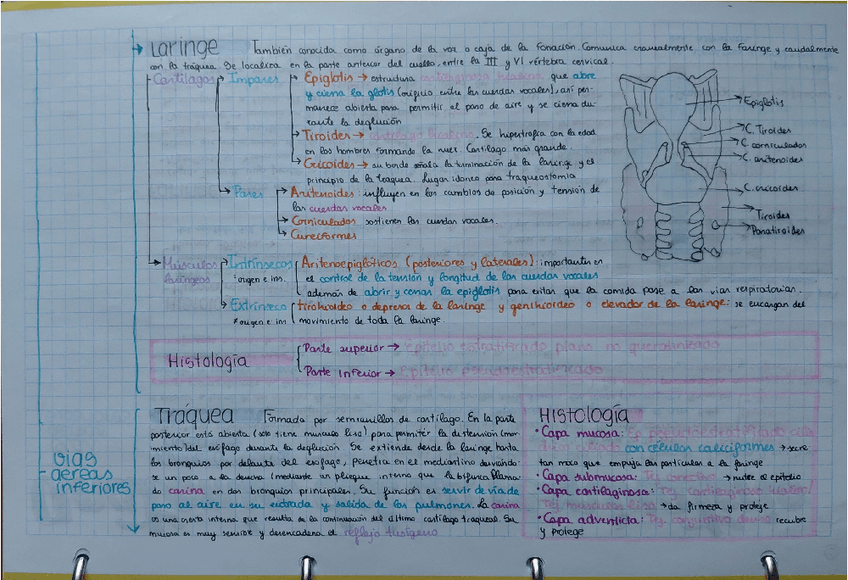 Laringe También conocida como órgano de la voz o caja de la fonación. Comunica cranealmente con la faringe y caudalmente
con la tráquea. Se localiza en la parte anterior del cuello, entre la III y VI vértebra cervical.
Cartílagos
Impares
Epiglotis → estructura que abre
y cierra la glotis (orificio entre las cuerdas vocales), así per-
manece abierta para permitir el paso de aire y se cierra du-
rante la deglución
Tiroides → Se hipertrofia con la edad
en los hombres formando la nuez. Cartílago más grande.
Cricoides → su borde señala la terminación de la laringe y el
principio de la tráquea. Lugar idóneo para traqueostomía
Pares
Aritenoides: influyen en los cambios de posición y tensión de
las cuerdas vocales
Corniculados sostienen las cuerdas vocales.
Cuneiformes
Epiglotis
C. Tiroides
C. corniculados
C. aritenoides
C. cricoides
Tiroides
Paratiroides
Músculos
laríngeos
Intrínsecos
*origen e ins.
Aritenoepiglóticos (posteriores y laterales): importantes en
el control de la tensión y longitud de las cuerdas vocales
además de abrir y cerrar la epiglotis para evitar que la comida pase a las vías respiratorias.
Extrínseco
*origen e ins
tirohioideo o depresor de la laringe y genihioideo o elevador de la laringe: se encargan del
movimiento de toda la laringe.
Histología
Parte superior → Epitelio estratificado plano no queratinizado
Parte Inferior → Epitelio pseudoestratificado
vías
aereas
inferiores
Tráquea Formada por semianillos de cartílago. En la parte
posterior está abierta (solo tiene músculo liso) para permitir la distensión (mo-
vimiento) del esófago durante la deglución. Se extiende desde la laringe hasta
los bronquios por delante del esófago, penetra en el mediastino desviándo-
se un poco a la derecha (mediante un pliegue interno que la bifurca llama-
do carina en dos bronquios principales. Su función es servir de vía de
paso al aire en su entrada y salida de los pulmones. La carina
es una cresta interna que resulta de la continuación del último cartílago traqueal. Su
mucosa es muy sensible y desencadena el reflejo tusígeno
Histología
• Capa mucosa: con células caliciformes → secre
tan moco que empuja las partículas a la faringe
• Capa submucosa: Tej. conectivo → nutre al epitelio
• Capa cartilaginosa: Tej. cartilaginoso
Tej. muscular liso → da firmeza y protege
• Capa adventicia: Tej. conjuntivo denso recubre
y protege